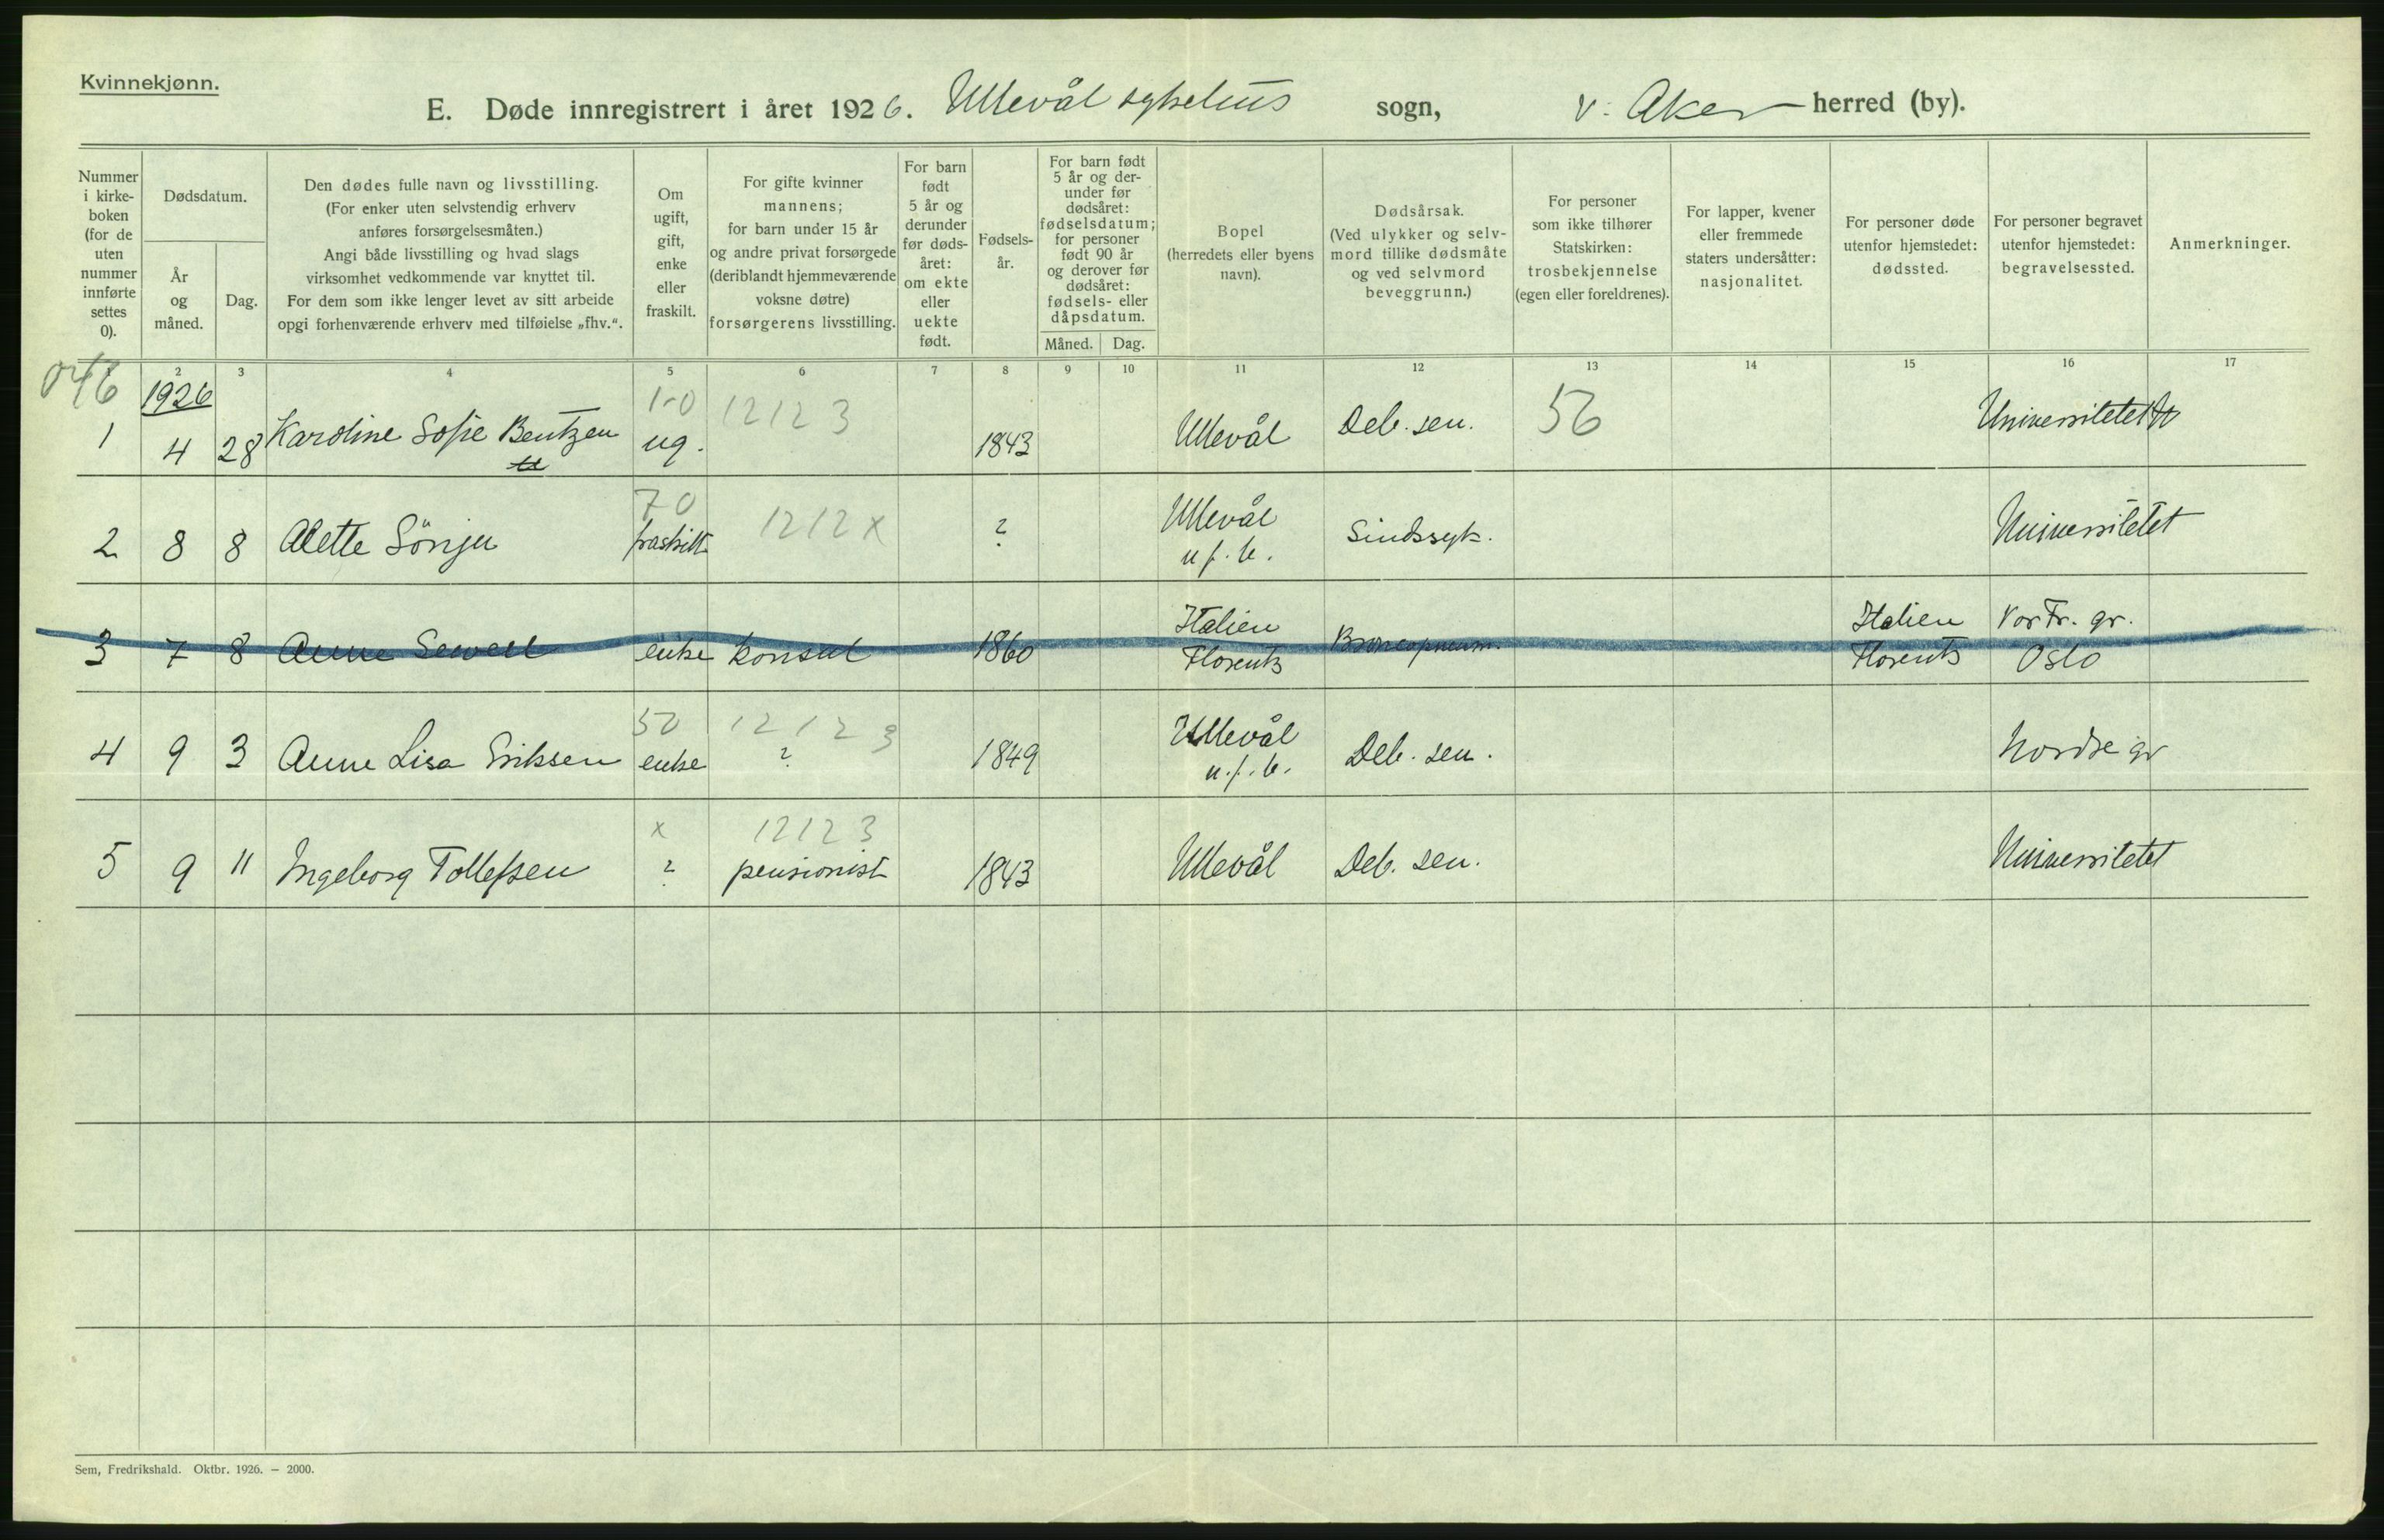 Kvinnekjønn.
E. Døde innregistrert i året 1926. Ullevål sykehus sogn, V. Aker herred (by).
Nummer i kirke-boken (for de uten nummer innførte settes 0).
Dødsdatum.
År og måned.
Dag.
Den dødes fulle navn og livsstilling.
(For enker uten selvstendig erhverv
anføres forsørgelsesmåten.)
Angi både livsstilling og hvad slags
virksomhet vedkommende var knyttet til.
For dem som ikke lenger levet av sitt arbeide
opgi forhenværende erhverv med tilføielse „fhv.“.
Om
ugift,
gift,
enke
eller
fraskilt.
For gifte kvinner
mannens;
for barn under 15 år
og andre privat forsørgede
(deriblandt hjemmeværende
voksne døtre)
forsørgerens livsstilling.
For barn
født
5 år og
derunder
før døds-
året:
om ekte
eller
uekte
født.
Fødsels-
år.
For barn født
5 år og der-
under før
dødsåret:
fødselsdatum;
for personer
født 90 år
og derover før
dødsåret:
fødsels- eller
dåpsdatum.
Måned. Dag.
Bopel
(herredets eller byens
navn).
Dødsårsak.
(Ved ulykker og selv-
mord tillike dødsmåte
og ved selvmord
beveggrunn.)
For personer
som ikke tilhører
Statskirken:
trosbekjennelse
(egen eller foreldrenes).
For lapper, kvener
eller fremmede
staters undersåtter:
nasjonalitet.
For personer døde
utenfor hjemstedet:
dødssted.
For personer begravet
utenfor hjemstedet:
begravelsessted.
Anmerkninger.
2 3 4 5 6 7 8 9 10 11 12 13 14 15 16 17
1926 10 12123 56
1 4 28 Karoline Sofie Bentzen ug. 1843 Ullevål Deb. sen. Universitetet
70 1212x
2 8 8 Alette Sönju fraskilt ? Ullevål u.f.b. Sindssyk. Universitetet
3 7 8 Anne Sewell enke konsul 1860 Italien Florentz Broncopneum. Italien Florentz Vor Fr. gr. Oslo
50 12123
4 9 3 Anne Lisa Eriksen enke ? 1849 Ullevål u.f.b. Deb. sen. Nordre gr
x 12123
5 9 11 Ingeborg Tollefsen ? pensionist 1843 Ullevål Deb. sen. Universitetet
Sem, Fredrikshald. Oktbr. 1926. — 2000.